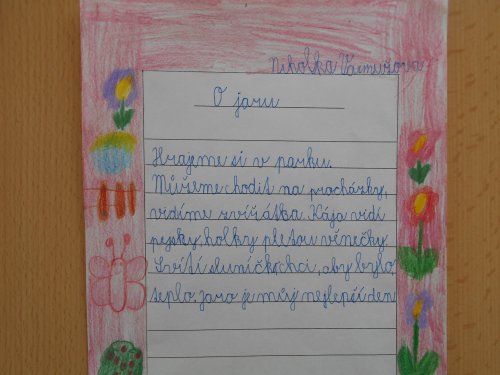 Nikolka Vacmužova
O jaru
Hrajeme si v parku.
Můžeme chodit na procházky,
vidíme zvířátka. Kája vidí
pejsky, holky pletou věnečky.
Svítí sluníčko, chci, aby bylo
teplo, jaro je můj nejlepší den